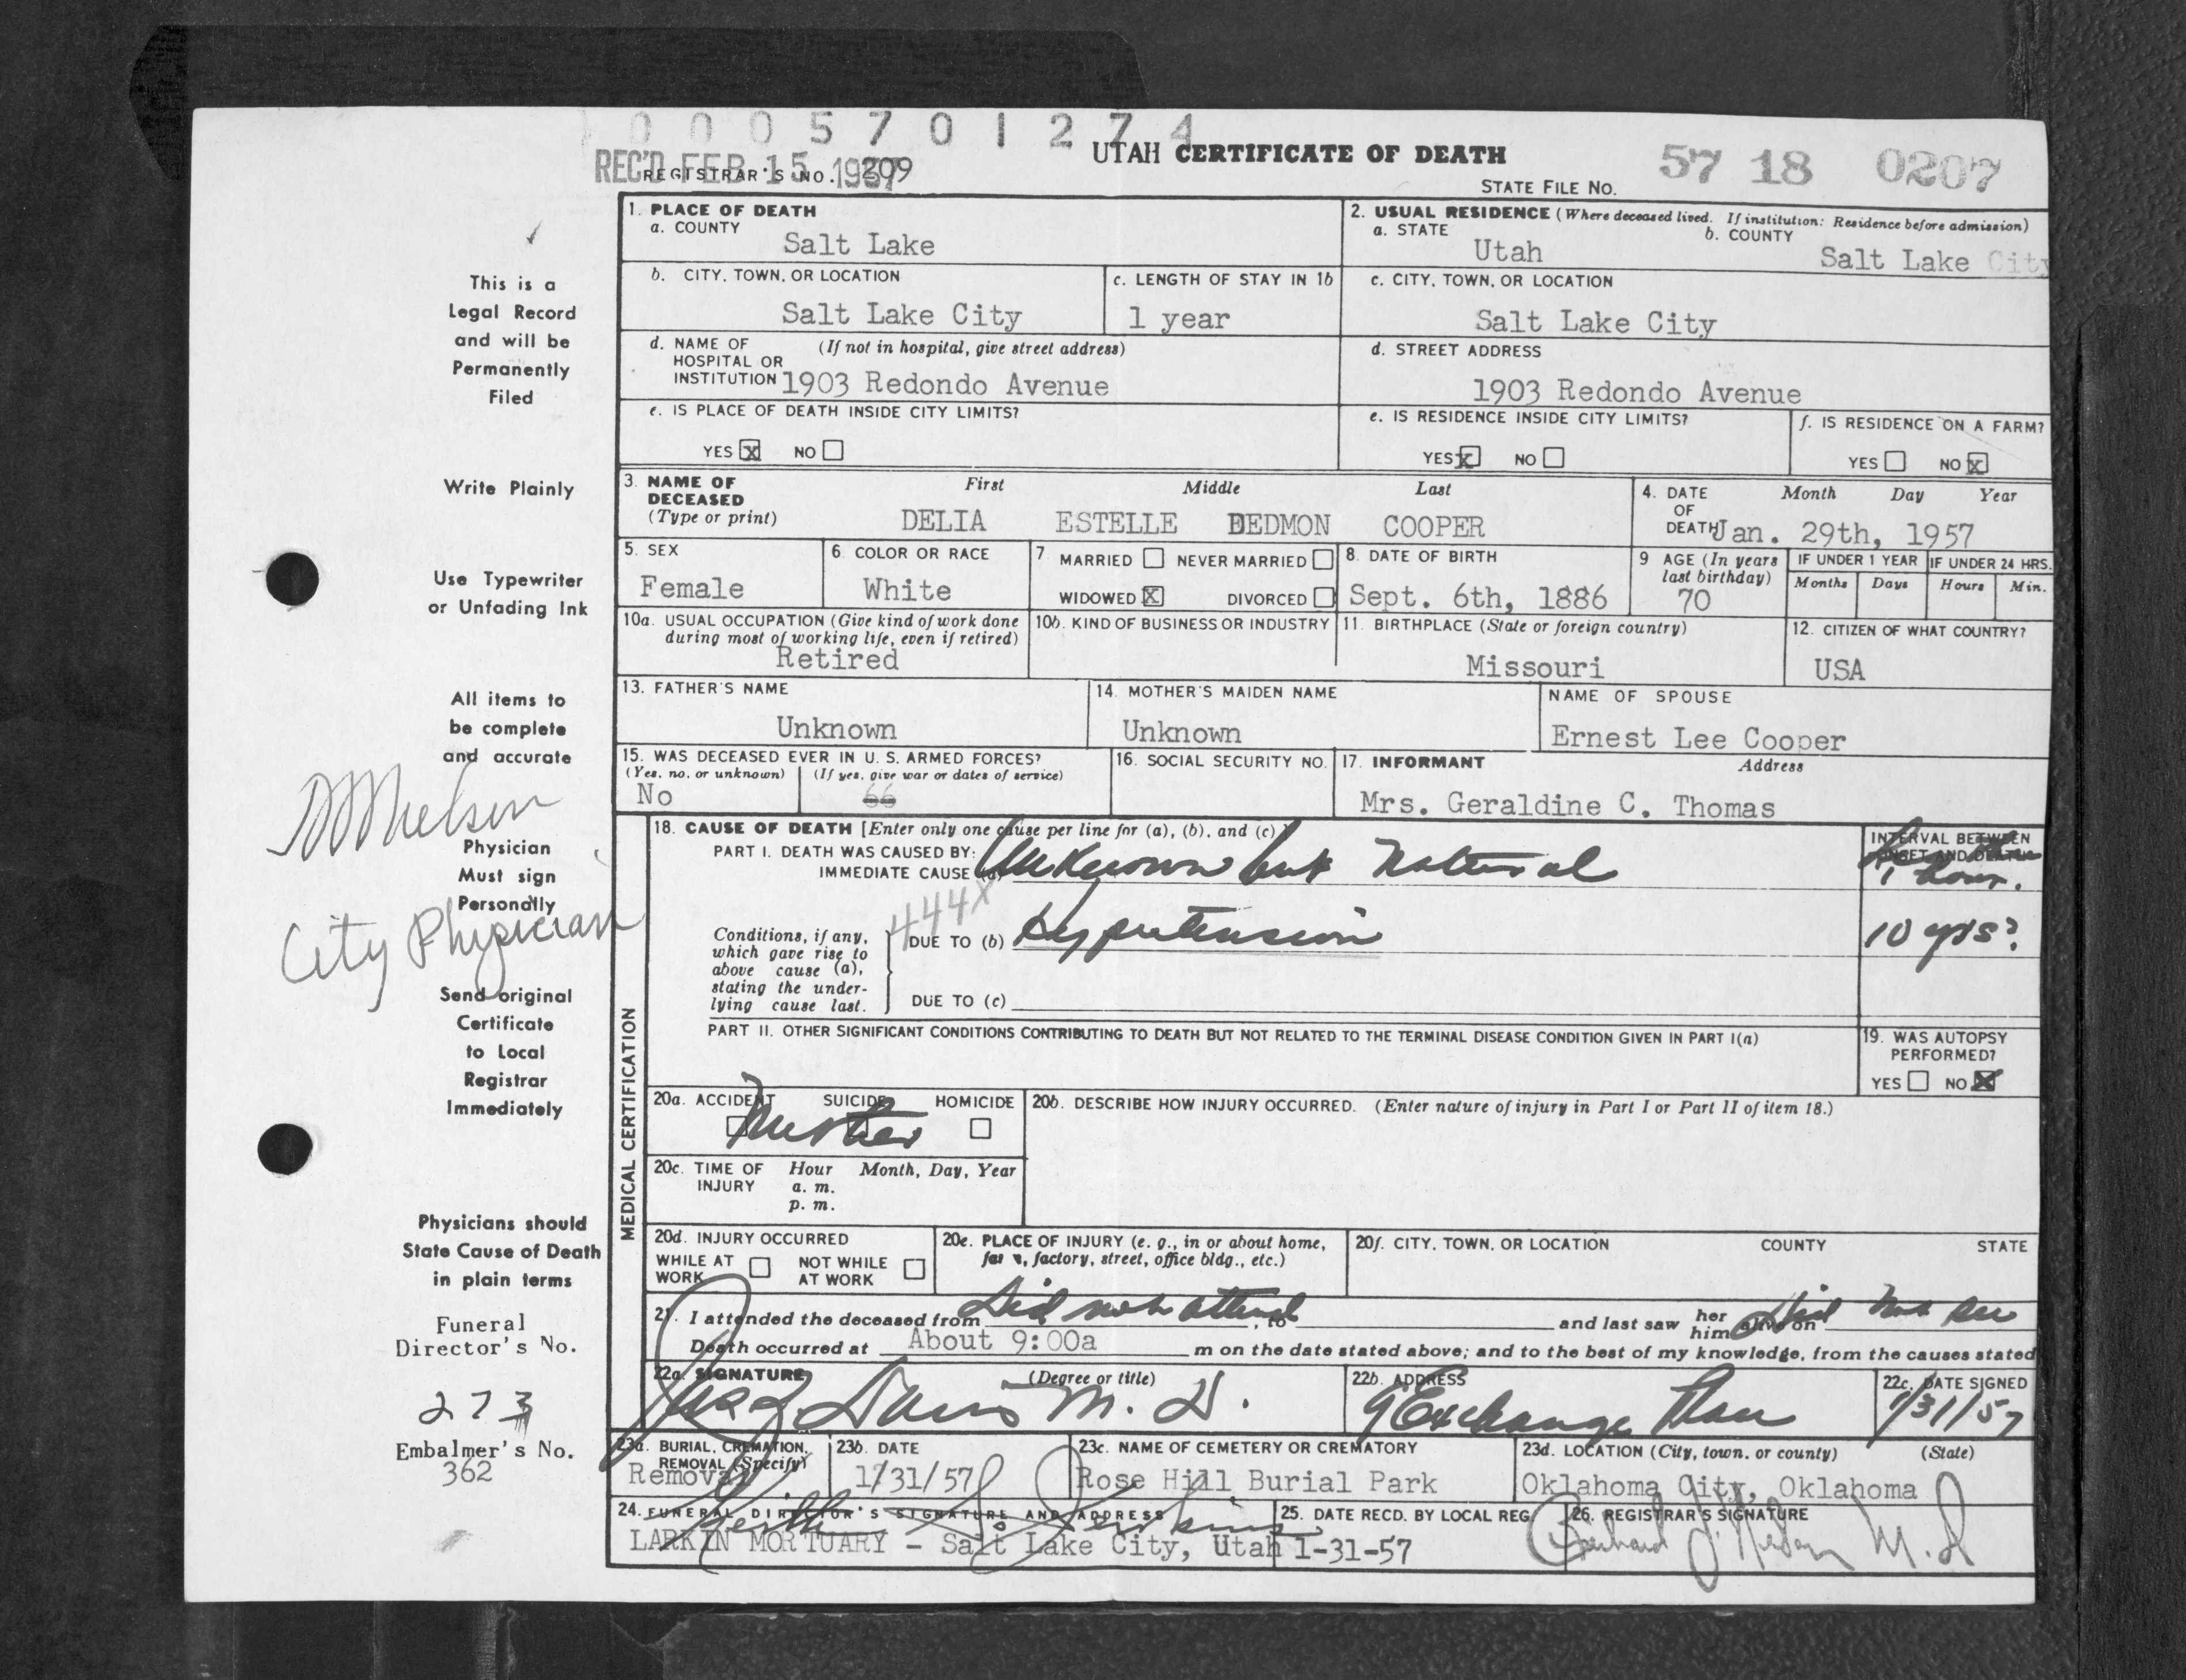 0005701274
REC'D FEB 15 1957
REGISTRAR'S NO. 209
UTAH CERTIFICATE OF DEATH
STATE FILE NO. 57 18 0207
1. PLACE OF DEATH
a. COUNTY
Salt Lake
2. USUAL RESIDENCE (Where deceased lived. If institution: Residence before admission)
a. STATE
Utah
b. COUNTY
Salt Lake City
b. CITY, TOWN, OR LOCATION
Salt Lake City
c. LENGTH OF STAY IN 1b
1 year
c. CITY, TOWN, OR LOCATION
Salt Lake City
d. NAME OF HOSPITAL OR INSTITUTION
(If not in hospital, give street address)
1903 Redondo Avenue
d. STREET ADDRESS
1903 Redondo Avenue
e. IS PLACE OF DEATH INSIDE CITY LIMITS?
YES X NO
e. IS RESIDENCE INSIDE CITY LIMITS?
YES X NO
f. IS RESIDENCE ON A FARM?
YES NO X
3. NAME OF DECEASED
(Type or print)
First Middle Last
DELIA ESTELLE DEDMON COOPER
4. DATE OF DEATH
Month Day Year
Jan. 29th, 1957
5. SEX
Female
6. COLOR OR RACE
White
7. MARRIED NEVER MARRIED
WIDOWED X DIVORCED
8. DATE OF BIRTH
Sept. 6th, 1886
9 AGE (In years last birthday)
70
IF UNDER 1 YEAR
Months Days
IF UNDER 24 HRS.
Hours Min.
10a. USUAL OCCUPATION (Give kind of work done during most of working life, even if retired)
Retired
10b. KIND OF BUSINESS OR INDUSTRY
11. BIRTHPLACE (State or foreign country)
Missouri
12. CITIZEN OF WHAT COUNTRY?
USA
13. FATHER'S NAME
Unknown
14. MOTHER'S MAIDEN NAME
Unknown
NAME OF SPOUSE
Ernest Lee Cooper
15. WAS DECEASED EVER IN U. S. ARMED FORCES?
(Yes, no, or unknown)
No
(If yes, give war or dates of service)
66
16. SOCIAL SECURITY NO.
17. INFORMANT
Address
Mrs. Geraldine C. Thomas
MEDICAL CERTIFICATION
18. CAUSE OF DEATH [Enter only one cause per line for (a), (b), and (c)]
PART I. DEATH WAS CAUSED BY:
IMMEDIATE CAUSE (a) Unknown but Natural
INTERVAL BETWEEN ONSET AND DEATH
1 hour.
444X
Conditions, if any, which gave rise to above cause (a), stating the underlying cause last.
DUE TO (b) Hypertension
10 yrs?
DUE TO (c)
PART II. OTHER SIGNIFICANT CONDITIONS CONTRIBUTING TO DEATH BUT NOT RELATED TO THE TERMINAL DISEASE CONDITION GIVEN IN PART I(a)
19. WAS AUTOPSY PERFORMED?
YES NO X
20a. ACCIDENT SUICIDE HOMICIDE
20b. DESCRIBE HOW INJURY OCCURRED. (Enter nature of injury in Part I or Part II of item 18.)
20c. TIME OF INJURY
Hour Month, Day, Year
a. m.
p. m.
20d. INJURY OCCURRED
WHILE AT WORK
NOT WHILE AT WORK
20e. PLACE OF INJURY (e. g., in or about home, farm, factory, street, office bldg., etc.)
20f. CITY, TOWN, OR LOCATION COUNTY STATE
21. I attended the deceased from Did not attend, to and last saw her him alive on Did not see
Death occurred at About 9:00a m on the date stated above; and to the best of my knowledge, from the causes stated
22a. SIGNATURE
(Degree or title)
Davis M. D.
22b. ADDRESS
9 Exchange Place
22c. DATE SIGNED
1/31/57
23a. BURIAL, CREMATION, REMOVAL (Specify)
Removal
23b. DATE
1/31/57
23c. NAME OF CEMETERY OR CREMATORY
Rose Hill Burial Park
23d. LOCATION (City, town, or county) (State)
Oklahoma City, Oklahoma
24. FUNERAL DIRECTOR'S SIGNATURE AND ADDRESS
LARKIN MORTUARY - Salt Lake City, Utah
25. DATE RECD. BY LOCAL REG.
1-31-57
26. REGISTRAR'S SIGNATURE
M.D
This is a
Legal Record
and will be
Permanently
Filed
Write Plainly
Use Typewriter
or Unfading Ink
All items to
be complete
and accurate
Physician
Must sign
Personally
City Physician
Send original
Certificate
to Local
Registrar
Immediately
Physicians should
State Cause of Death
in plain terms
Funeral
Director's No.
273
Embalmer's No.
362